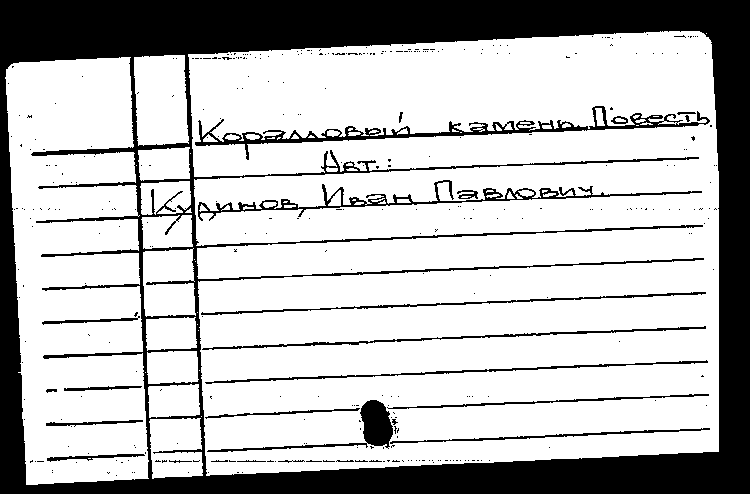 Коралловый камень. Повесть
Авт.:
Кудинов, Иван Павлович.